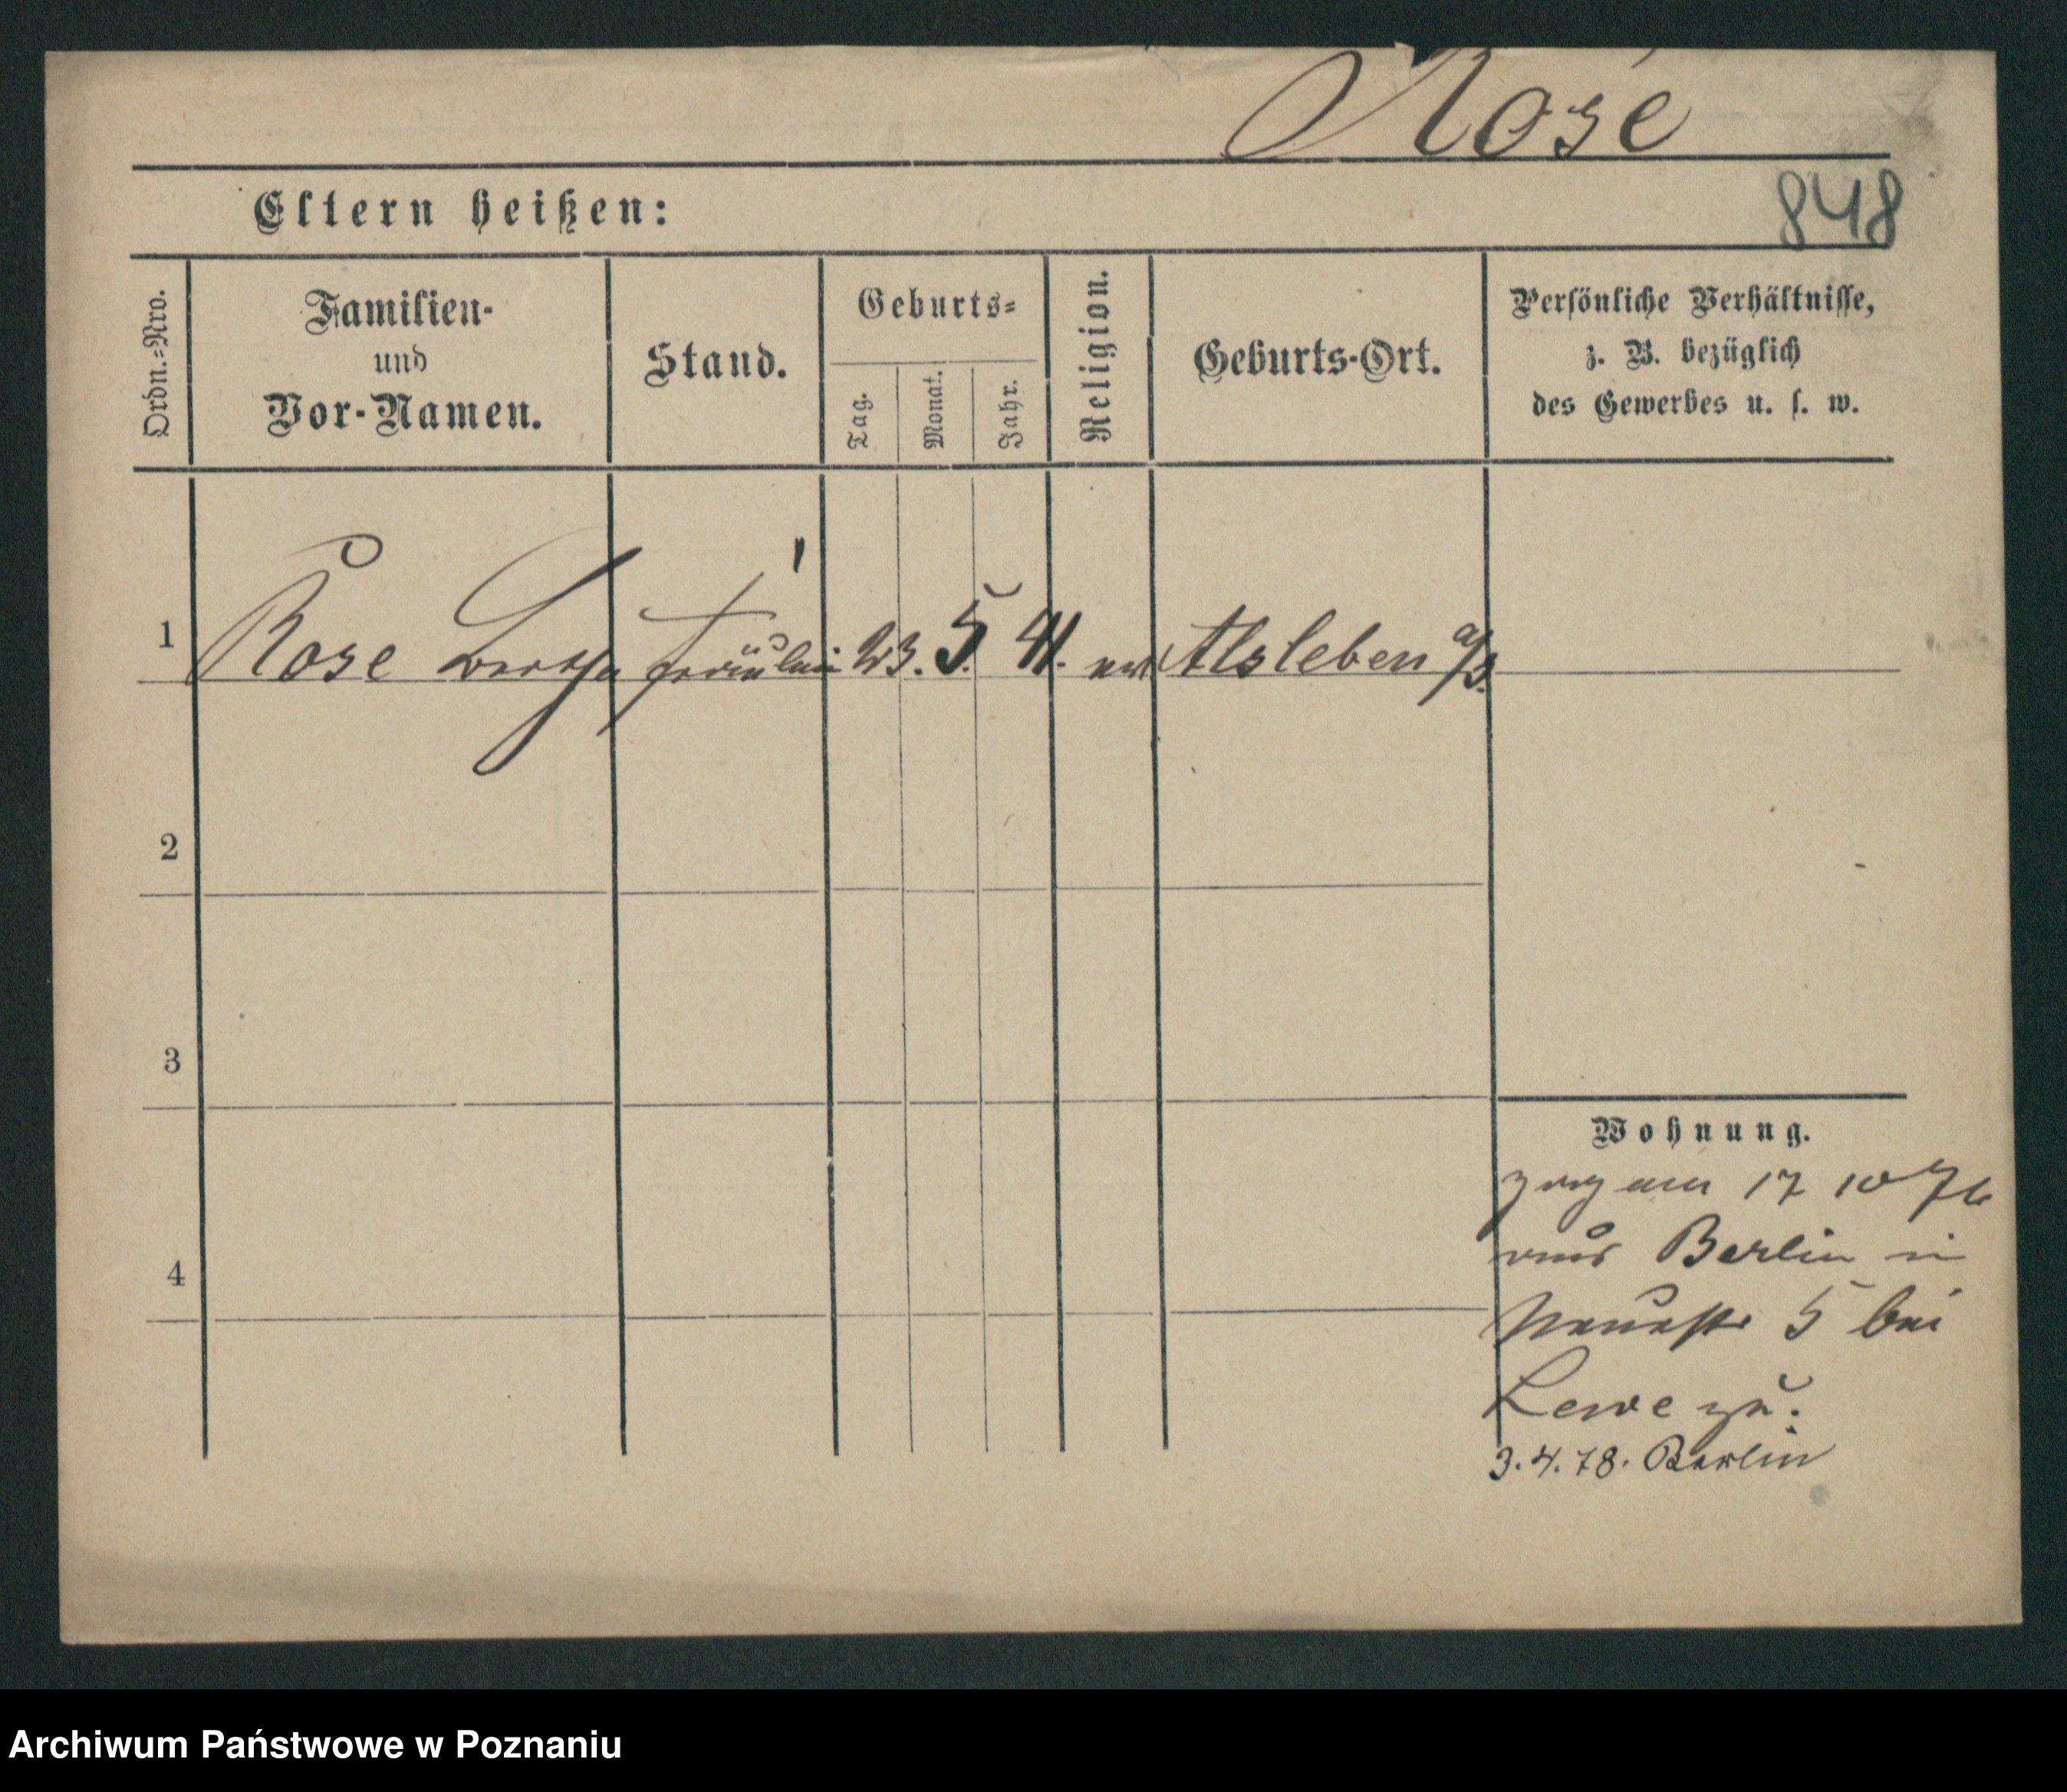 Rose
848
Eltern heißen:
Ordn.=Nro.
Familien-
und
Vor-Namen.
Stand.
Geburts=
Tag.
Monat.
Jahr.
Religion.
Geburts-Ort.
Persönliche Verhältnisse,
z. B. bezüglich
des Gewerbes u. s. w.
1 Rose Bertha Fräulein 23. 5. 41. ev Alsleben a/S.
2
3
4
Wohnung.
zog am 17 10 76
aus Berlin in
Neuestr 5 bei
Lewe zu.
3.4.78. Berlin
Archiwum Państwowe w Poznaniu